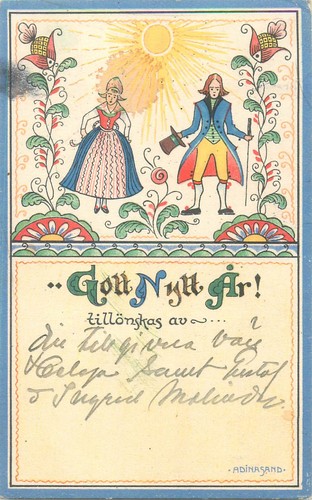 ·· Gott Nytt År!
tillönskas av ~...
tillgivna
Helga Samt Gustaf
o Ingrid
·ADINA SAND·